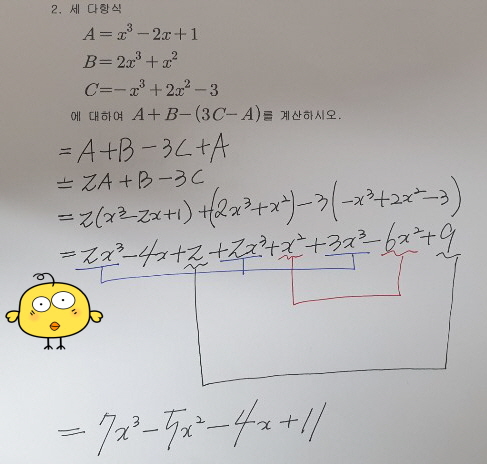 2. 세 다항식
A=x³-2x+1
B=2x³+x²
C=-x³+2x²-3
에 대하여 A+B-(3C-A)를 계산하시오.
=A+B-3C+A
=2A+B-3C
=2(x³-2x+1)+(2x³+x²)-3(-x³+2x²-3)
=2x³-4x+2+2x³+x²+3x³-6x²+9
=7x³-5x²-4x+11